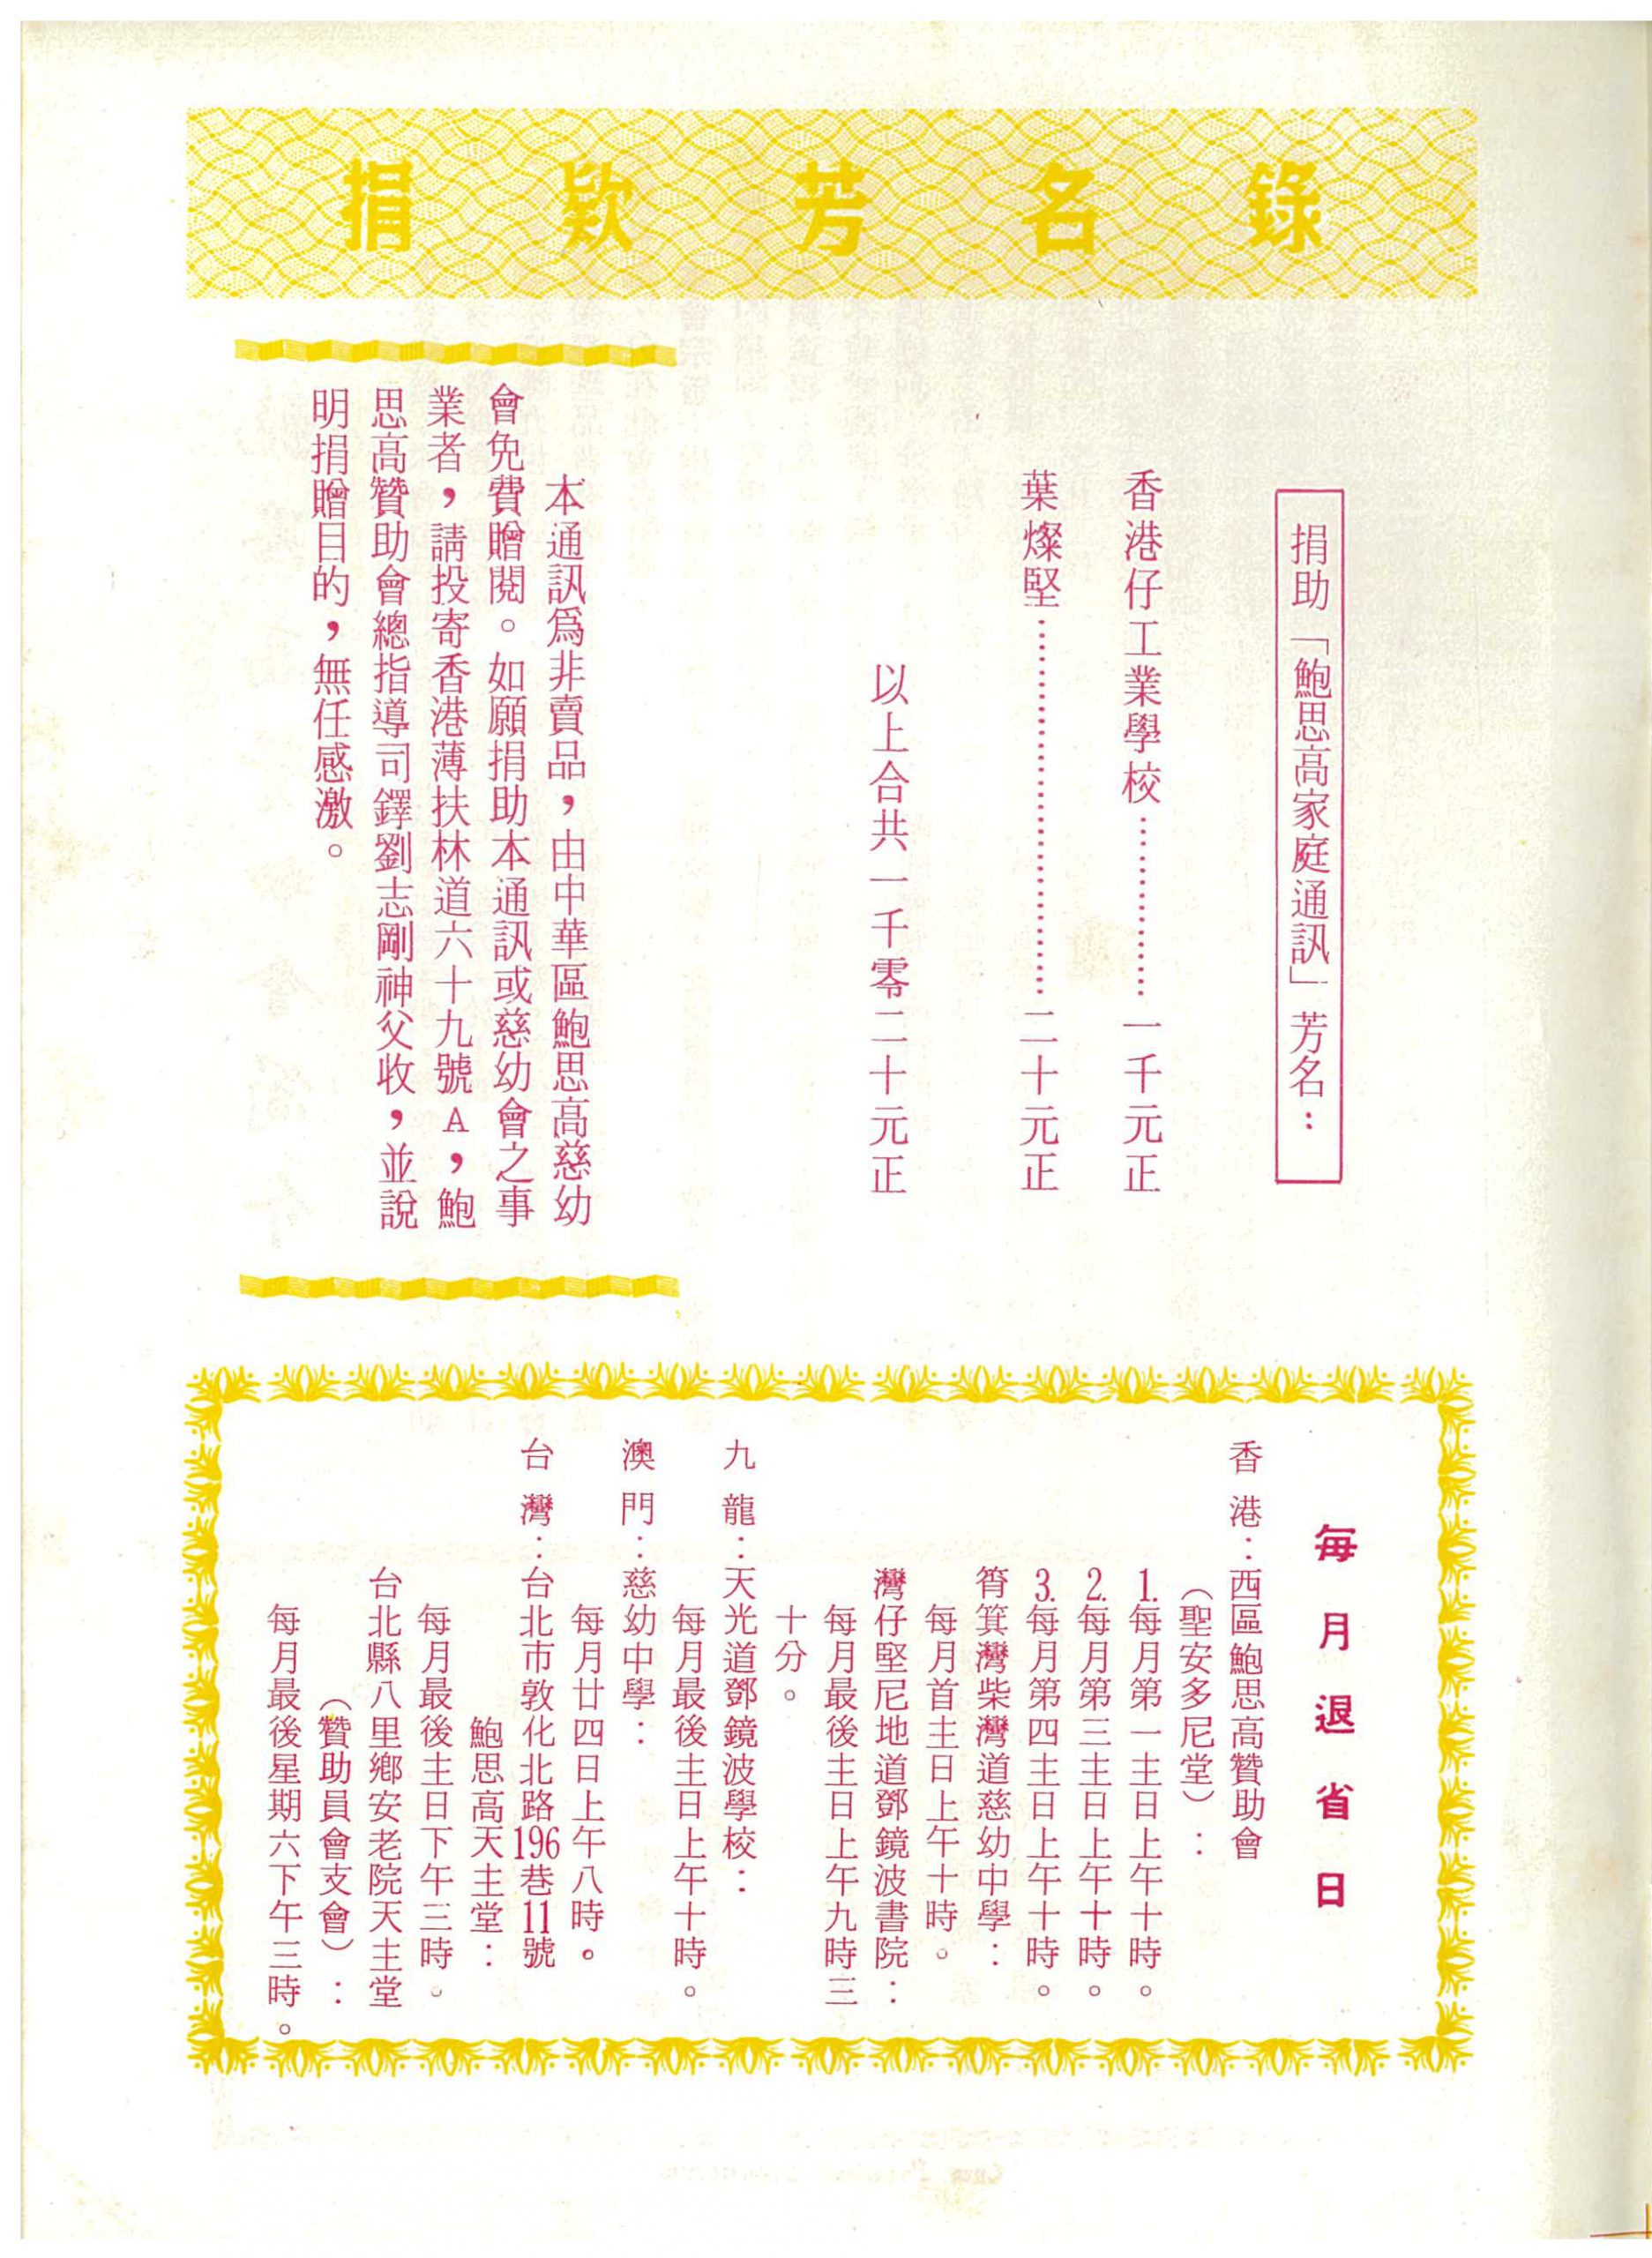 捐欵芳名錄
捐助「鮑思高家庭通訊」芳名：
香港仔工業學校………………一千元正
葉燦堅………………………………二十元正
以上合共一千零二十元正
本通訊爲非賣品，由中華區鮑思高慈幼
會免費贈閱。如願捐助本通訊或慈幼會之事
業者，請投寄香港薄扶林道六十九號A，鮑
思高贊助會總指導司鐸劉志剛神父收，並說
明捐贈目的，無任感激。
每月退省日
香港：西區鮑思高贊助會
（聖安多尼堂）：
1.每月第一主日上午十時。
2.每月第三主日上午十時。
3.每月第四主日上午十時。
筲箕灣柴灣道慈幼中學：
每月首主日上午十時。
灣仔堅尼地道鄧鏡波書院：
每月最後主日上午九時三
十分。
九龍：天光道鄧鏡波學校：
每月最後主日上午十時。
澳門：慈幼中學：
每月廿四日上午八時。
台灣：台北市敦化北路196巷11號
鮑思高天主堂：
每月最後主日下午三時。
台北縣八里鄉安老院天主堂
（贊助員會支會）：
每月最後星期六下午三時。